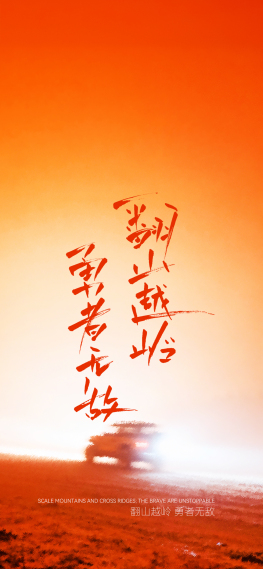 翻山越岭
勇者无敌
SCALE MOUNTAINS AND CROSS RIDGES. THE BRAVE ARE UNSTOPPABLE
翻山越岭 勇者无敌